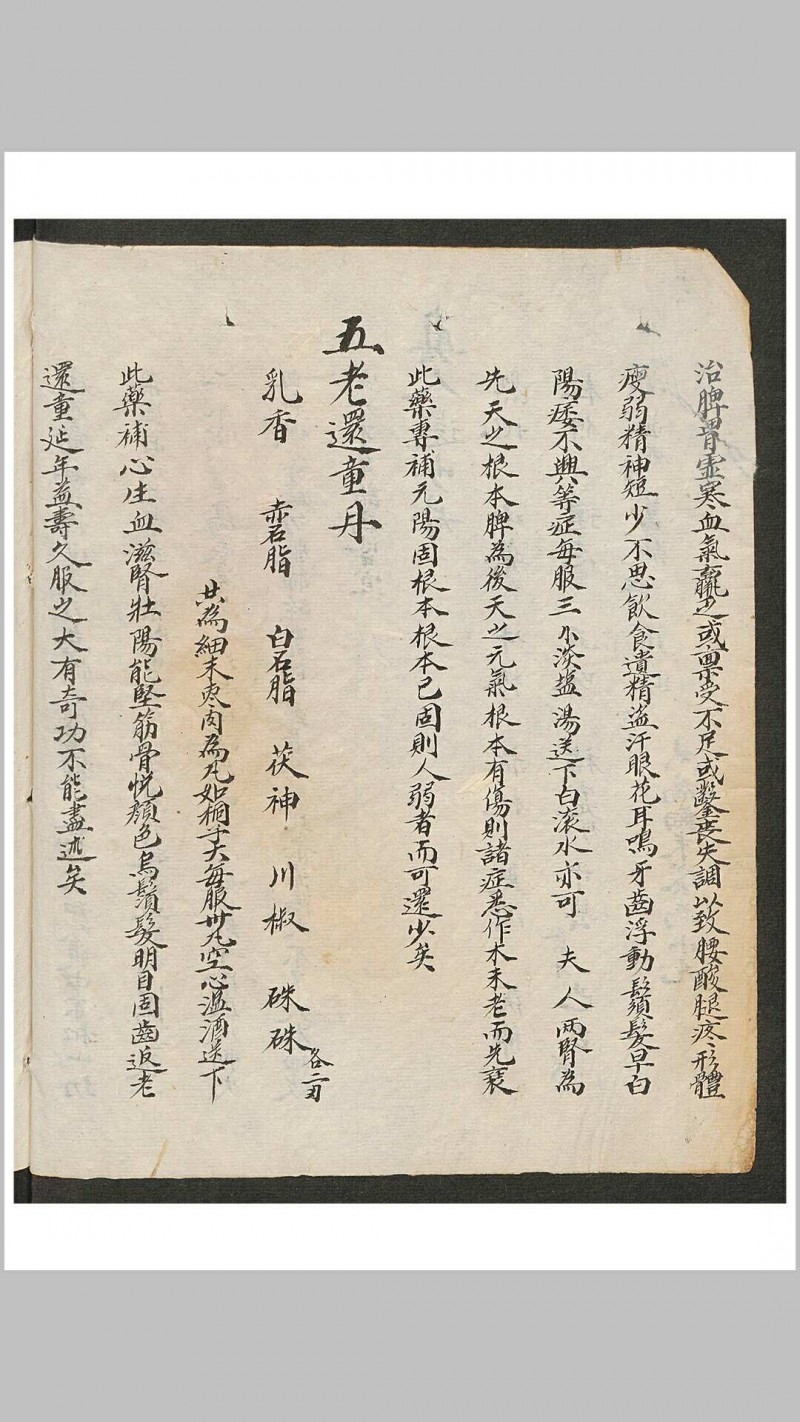 治脾胃虛寒血氣羸乏或禀受不足或鑿喪失調以致腰酸腿疼形體
瘦弱精神短少不思飲食遺精盗汗眼花耳鳴牙齒浮動鬚髮早白
陽痿不興等症每服三小淡盐湯送下白滚水亦可 夫人兩腎為
先天之根本脾為後天之元氣根本有傷則諸症悉作本未老而先衰
此藥專補元陽固根本根本已固則人弱者而可還少矣
五老還童丹
乳香 赤石脂 白石脂 茯神 川椒 硃硃 各二刄
共為細末枣肉為丸如桐子大每服卅丸空心温酒送下
此藥補心生血滋腎壯陽能堅筋骨悦顔色烏鬚髮明目固齒返老
還童延年益壽久服之大有奇功不能盡述矣